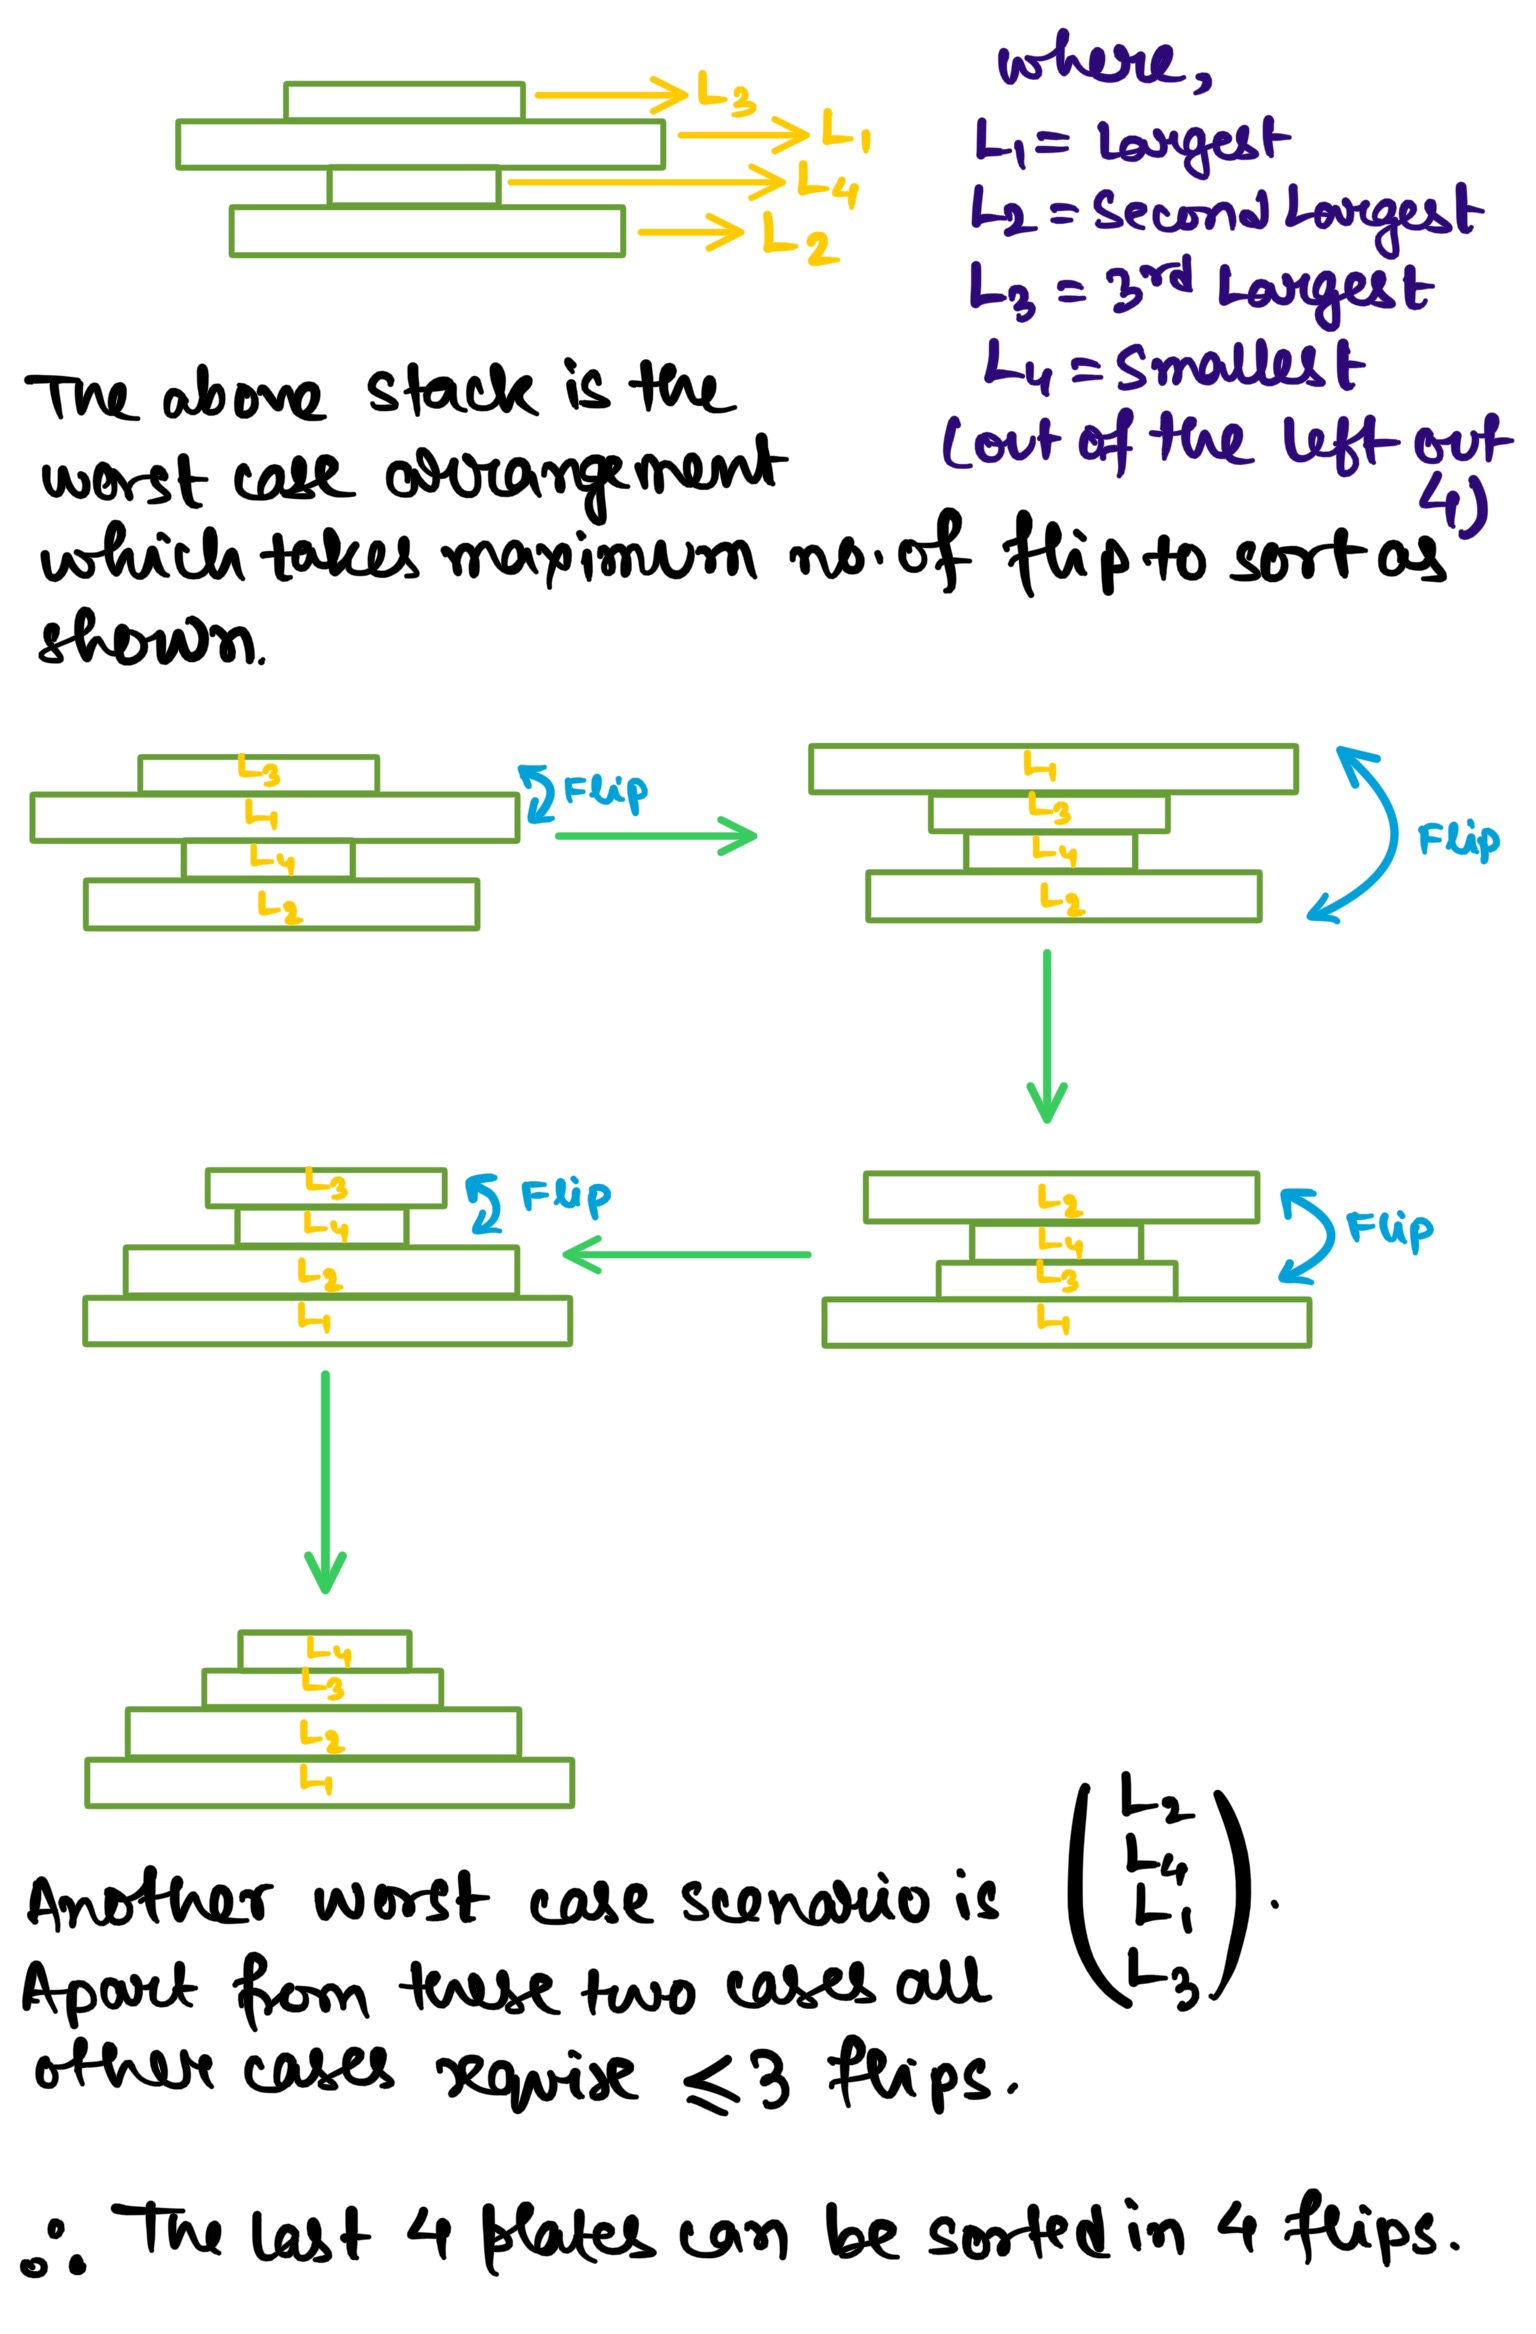 L3
L1
L4
L2
where,
L1 = Largest
L2 = Second Largest
L3 = 3rd Largest
L4 = Smallest
(out of the left out
4)
The above stack is the
worst case arrangement
which takes maximum no. of flip to sort as
shown.
L3
L1
L4
L2
Flip
L1
L3
L4
L2
Flip
L3
L4
L2
L1
Flip
L2
L4
L3
L1
Flip
L4
L3
L2
L1
Another worst case scenario is (L2 L4 L1 L3).
Apart from these two cases all
other cases require ≤ 3 flips.
∴ The last 4 plates can be sorted in 4 flips.